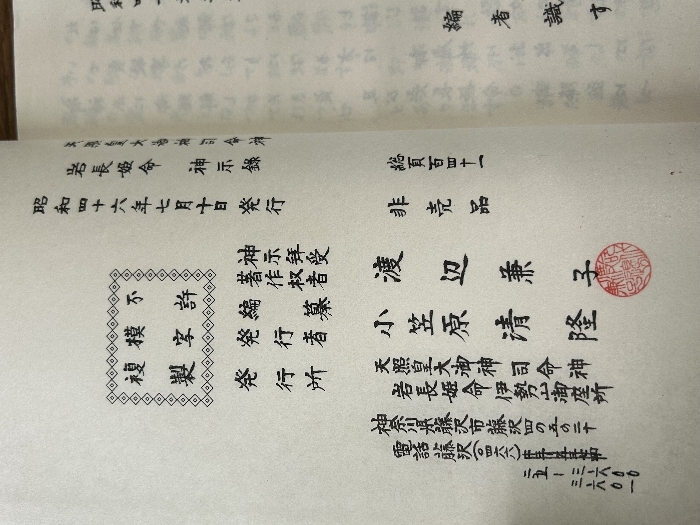 編者識す
天照皇大御神司命神
岩長姫命 神示録
総頁百四十一
昭和四十六年七月十日発行
非売品
不許
模写
複製
神示拝受
著作权者
渡辺兼子
編纂
発行者
小笠原清隆
発行所
天照皇大御神司命神
岩長姫命伊勢山御座所
神奈川県藤沢市藤沢四の五の二十
電話藤沢(〇四六六)